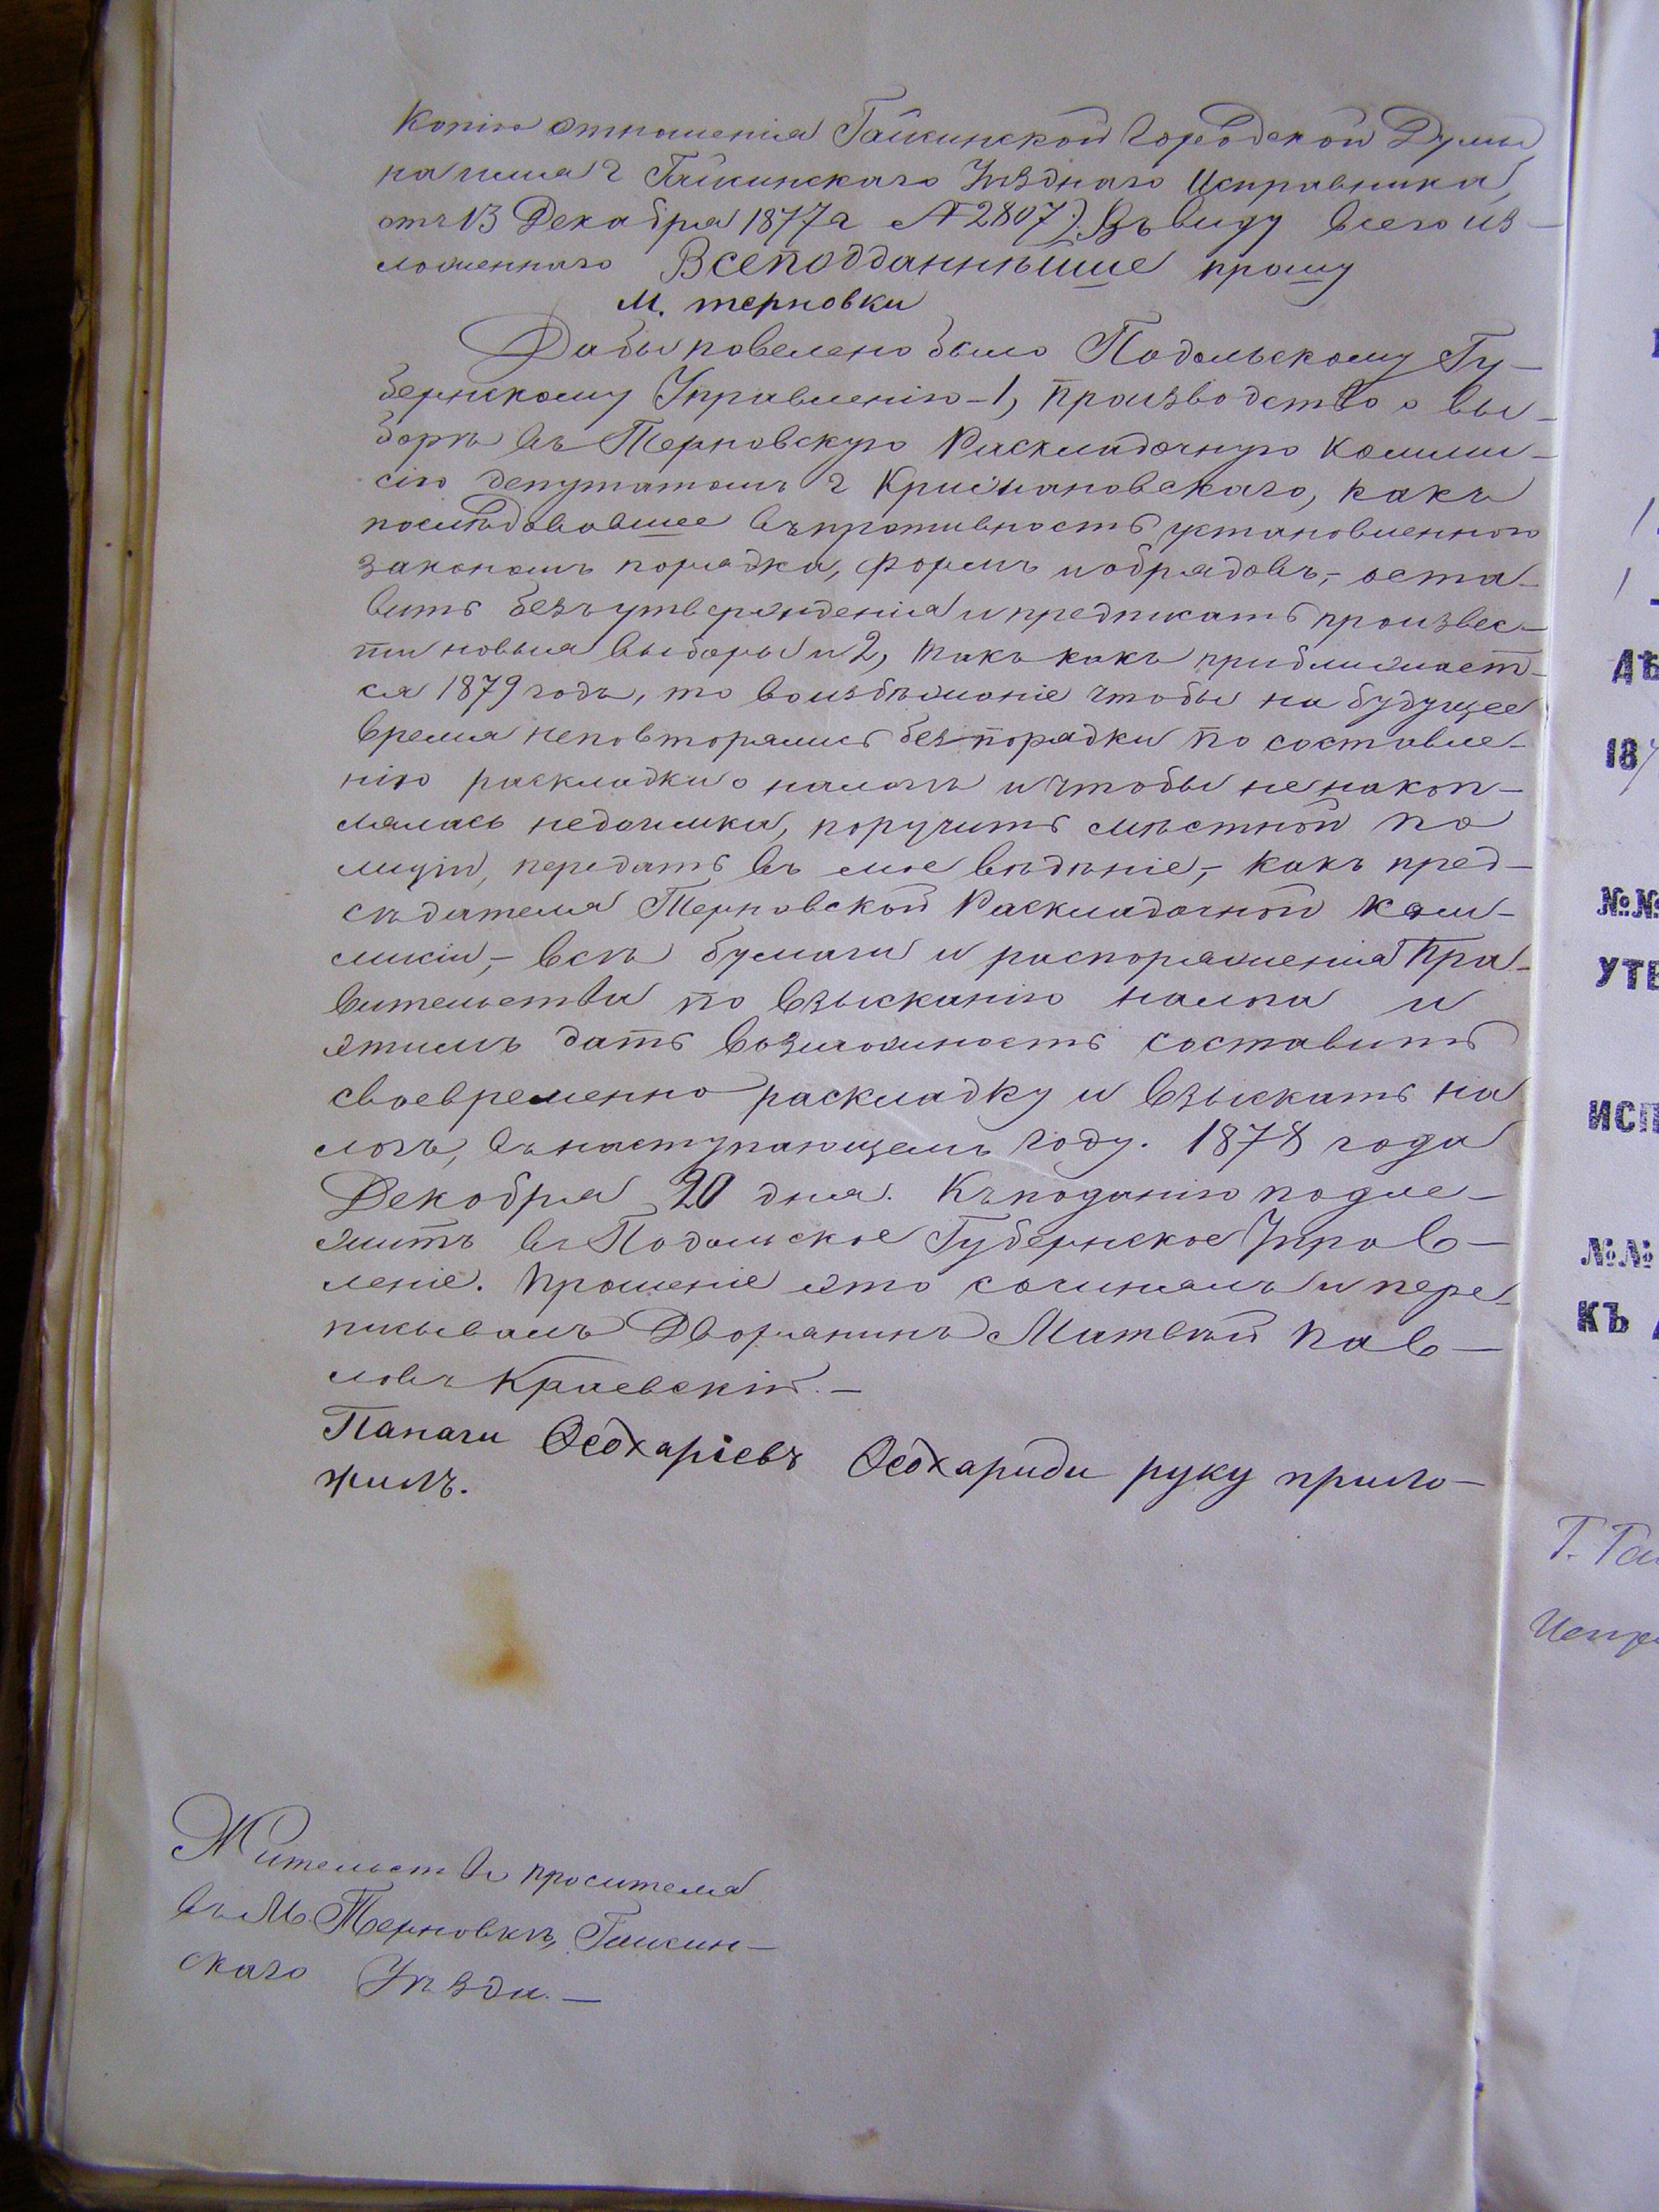 Копію отношенія Гайсинской Городской Думы
на имя г Гайсинскаго Уѣзднаго Исправника,
отъ 13 Декабря 1877 г № 2807). Въ виду всего из-
ложеннаго Всеподданнѣише прошу
м. терновки
Дабы повелено было Подольскому Гу-
бернскому Управленію - 1, производство о вы-
борѣ въ Терновскую Раскладочную Комми-
сію депутатомъ г Крижановскаго, какъ
послѣдовавшее въ противность установленного
закономъ порядка, формъ и обрядовъ, - оста-
вить безъ утвержденія и предписать произвес-
ти новыя выборы и 2, такъ какъ приближает-
ся 1879 годъ, то во избѣжаніе чтобы на будущее
время неповторялись безпорядки по составле-
нію раскладки о налогѣ и чтобы не накоп-
лялась недоимка, поручить мѣстной по
лиціи, передать въ мое вѣдѣніе, - какъ пред-
сѣдателя Терновской Раскладочной Ком-
мисіи, - всѣ бумаги и распоряженія Пра-
вительства по взысканію налога и
этимъ дать возможность составить
своевременно раскладку и взыскать на
логъ, въ наступающемъ году. 1878 года
Декобря 20 дня. Къ поданію подле-
житъ въ Подольское Губернское Управ-
леніе. Прошеніе это сочинялъ и пере-
писывалъ Дворянинъ Матвѣй Пав-
ловъ Краевскій. -
Панаги Ѳеохаріевъ Ѳеохариди руку прило-
жилъ.
Жительство просителя
въ М. Терновкѣ, Гайсин-
скаго Уѣзда. -
18
№№
УТВ
ИСП
№№
КЪ